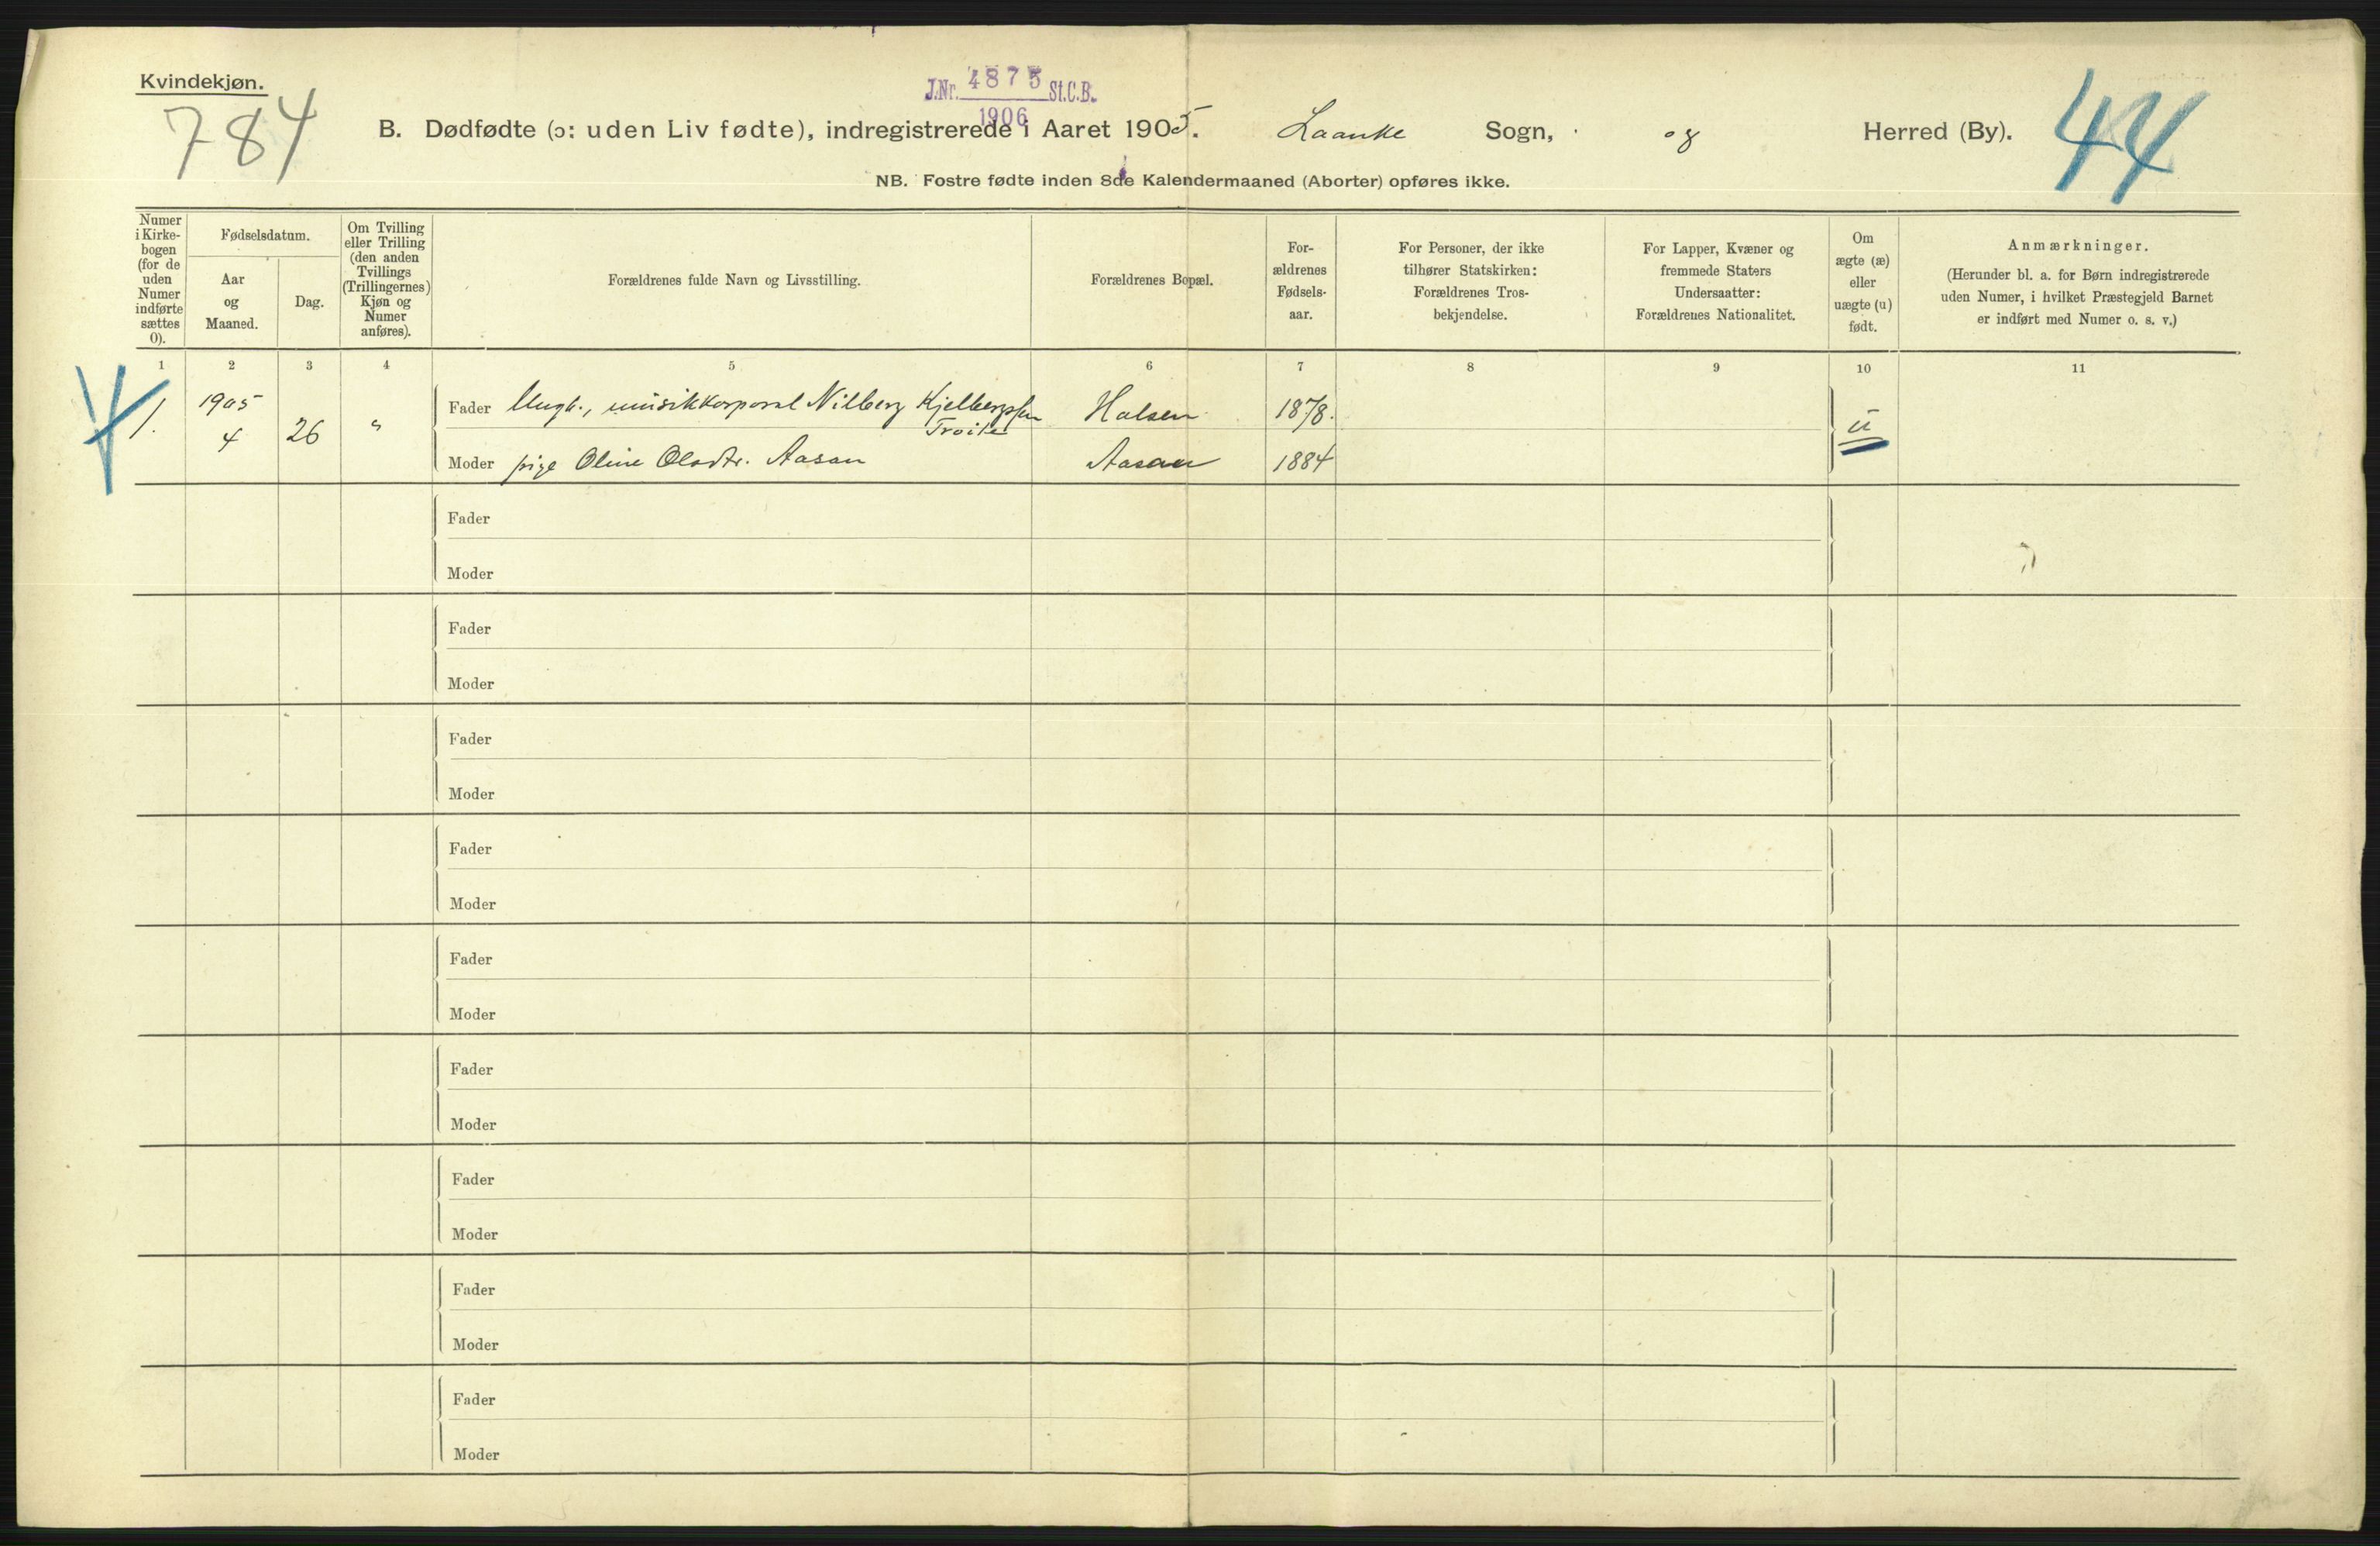 Kvindekjøn.
784
J.Nr. 4875 St.C.B.
1906
B. Dødfødte (ɔ: uden Liv fødte), indregistrerede i Aaret 1905. Laanke Sogn, og Herred (By).
44
NB. Fostre fødte inden 8de Kalendermaaned (Aborter) opføres ikke.
Numer
i Kirke-
bogen
(for de
uden
Numer
indførte
sættes
0).
Fødselsdatum.
Aar
og
Maaned.
Dag.
Om Tvilling
eller Trilling
(den anden
Tvillings
(Trillingernes)
Kjøn og
Numer
anføres).
Forældrenes fulde Navn og Livsstilling.
Forældrenes Bopæl.
For-
ældrenes
Fødsels-
aar.
For Personer, der ikke
tilhører Statskirken:
Forældrenes Tros-
bekjendelse.
For Lapper, Kvæner og
fremmede Staters
Undersaatter:
Forældrenes Nationalitet.
Om
ægte (æ)
eller
uægte (u)
født.
Anmærkninger.
(Herunder bl. a. for Børn indregistrerede
uden Numer, i hvilket Præstegjeld Barnet
er indført med Numer o. s. v.)
1 2 3 4 5 6 7 8 9 10 11
1. 1905
4 26 "
Fader Ungk., musikkorporal Nilberg Kjelbergsen Halsen 1878. u
Troite
Moder pige Oline Olsdtr. Aasan Aasan 1884
Fader
Moder
Fader
Moder
Fader
Moder
Fader
Moder
Fader
Moder
Fader
Moder
Fader
Moder
Fader
Moder
Fader
Moder